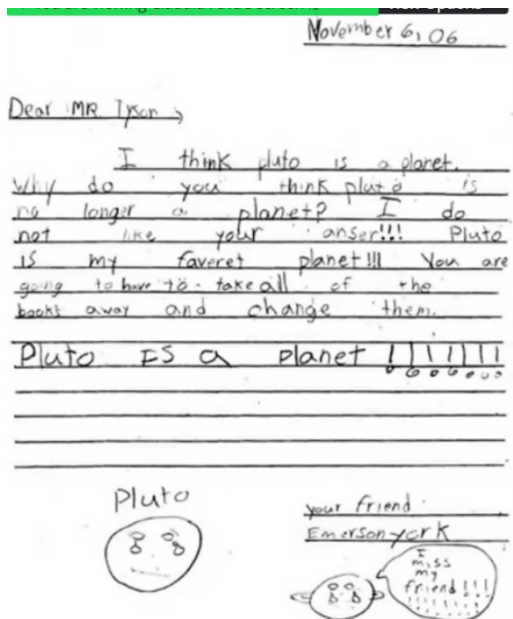 November 6, 06
Dear MR. Tyson,
I think pluto is a planet.
Why do you think pluto is
no longer a planet? I do
not like your anser!!! Pluto
is my faveret planet!!! You are
going to have to take all of the
books away and change them.
Pluto IS a planet !!!!!!!
Pluto
your friend
Emerson york
I
miss
my
friend!!!
!!!!!!!